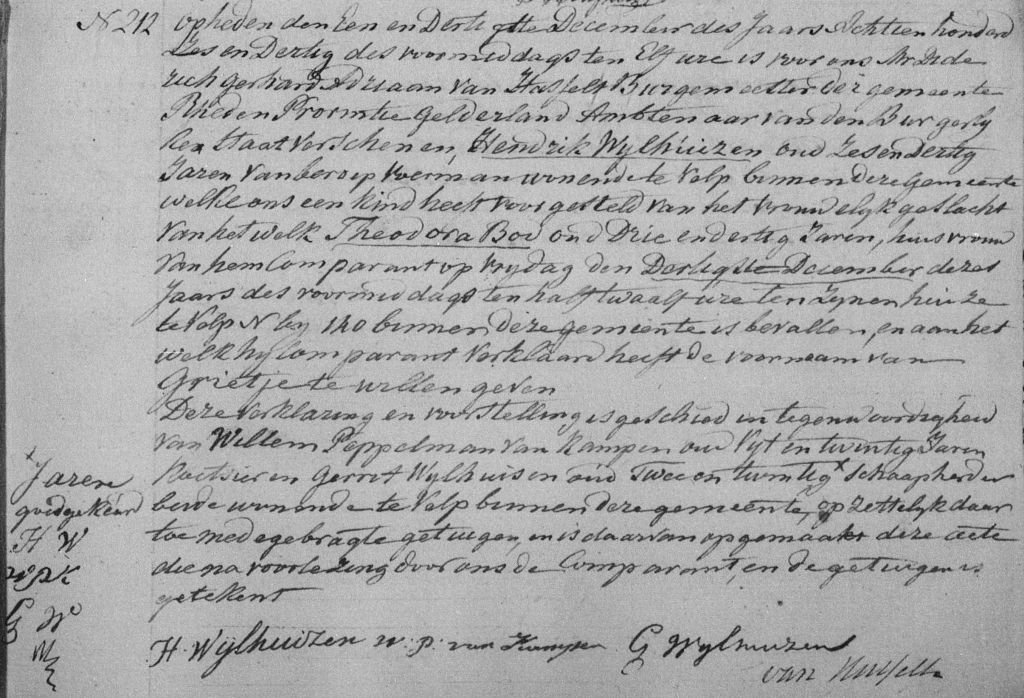 N 212 opheden den Een en Dertigste December des Jaars Achtien honderd
Zes en Dertig des voormiddags ten Elf ure is voor ons Mr Dide
rich gerhard Adriaan van Hasselt Burgemeester der gemeente
Rheden Provintie Gelderland Ambtenaar van den Burgerly
ken Staat verschenen, Hendrik Wylhuizen oud Zes en Dertig
Jaren van beroep voerman wonende te Velp binnen deze gemeente
welke ons een kind heeft voorgesteld van het vrouwelyk geslacht
van het welk Theodora Bod oud Drie en dertig Jaren, huisvrouw
van hem Comparant op vrydag den Dertigste December dezes
Jaars des voormiddags ten half twaalf ure ten zynen huize
te Velp N by 140 binnen deze gemeente is bevallen, en aan het
welk hy Comparant verklaard heeft de voornaam van
Grietje te willen geven
Deze verklaring en voorstelling is geschied in tegenwoordigheid
van Willem Peppelman van Kampen oud Vyf en twintig Jaren
Koetsier en Gerrit Wylhuisen oud Twee en twintig x Schaapherder
beide wonende te Velp binnen deze gemeente, opzettelyk daar
toe medegebragte getuigen, en is daarvan opgemaakt deze acte
die na voorlezing door ons de Comparant, en de getuigen is
getekent
x Jaren
goedgekeurd
H W
W P K
G W
H. Wijlhuizen w. p. van Kampen G Wylhuizen
van Hasselt